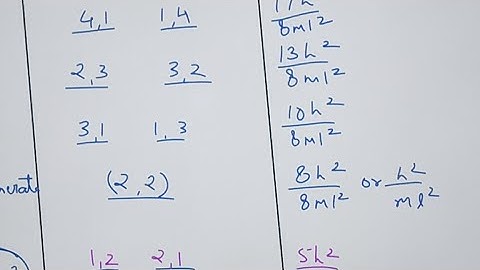 4,1 1,4 17h²/8ml²
2,3 3,2 13h²/8ml²
3,1 1,3 10h²/8ml²
(2,2) 8h²/8ml² or h²/ml²
1,2 2,1 5h²